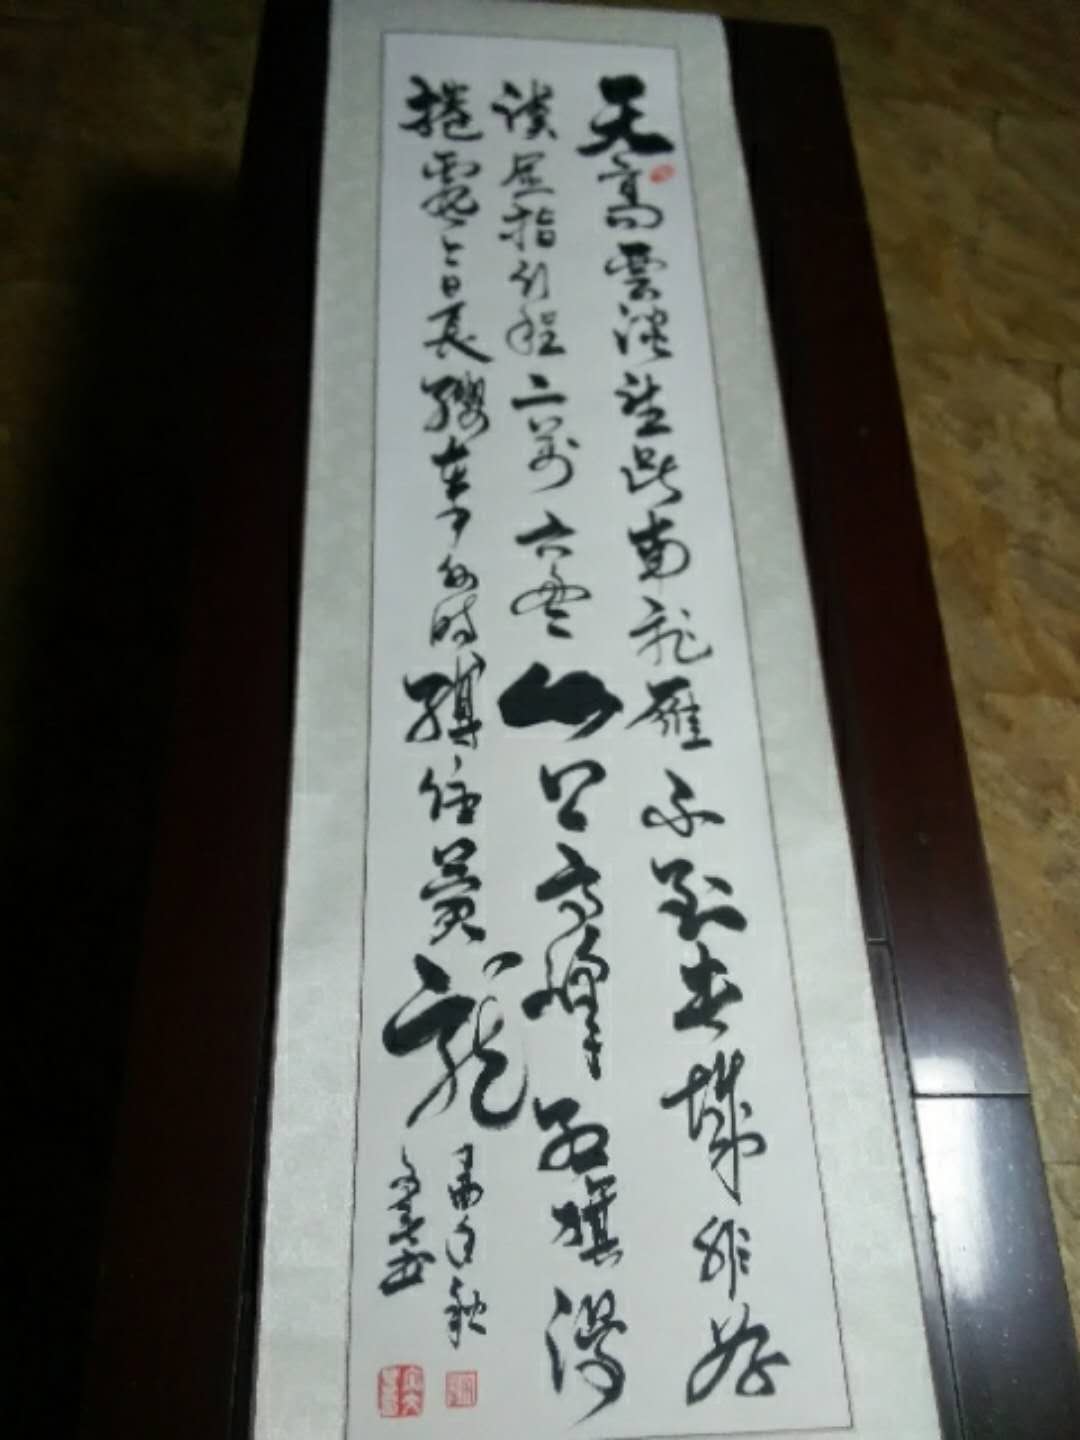 天高雲淡望断南飛雁不到長城非好
漢屈指行程二萬六盤山上高峰紅旗漫
捲西風今日長纓在手何時縛住蒼龍
丁酉年秋